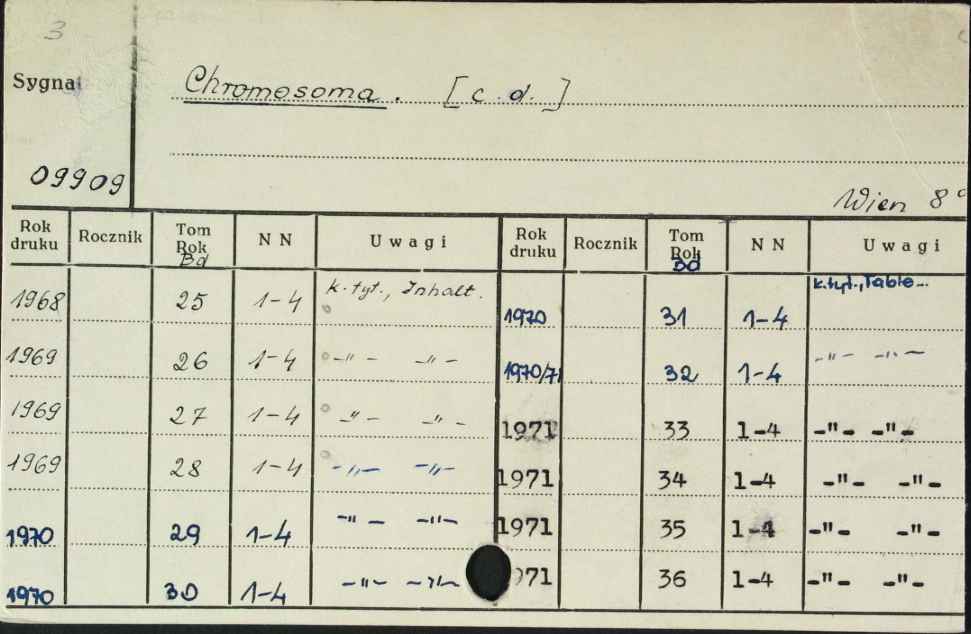 3
Sygnat
Chromosoma. [c. d.]
09909
Wien 8°
Rok druku Rocznik Tom Rok Bd NN Uwagi Rok druku Rocznik Tom Rok Bd NN Uwagi
1968 25 1-4 k. tyt., Inhalt. 1970 31 1-4 k. tyt., Table
1969 26 1-4 -"- -"- 1970/71 32 1-4 -"- -"-
1969 27 1-4 -"- -"- 1971 33 1-4 -"- -"-
1969 28 1-4 -"- -"- 1971 34 1-4 -"- -"-
1970 29 1-4 -"- -"- 1971 35 1-4 -"- -"-
1970 30 1-4 -"- -"- 971 36 1-4 -"- -"-